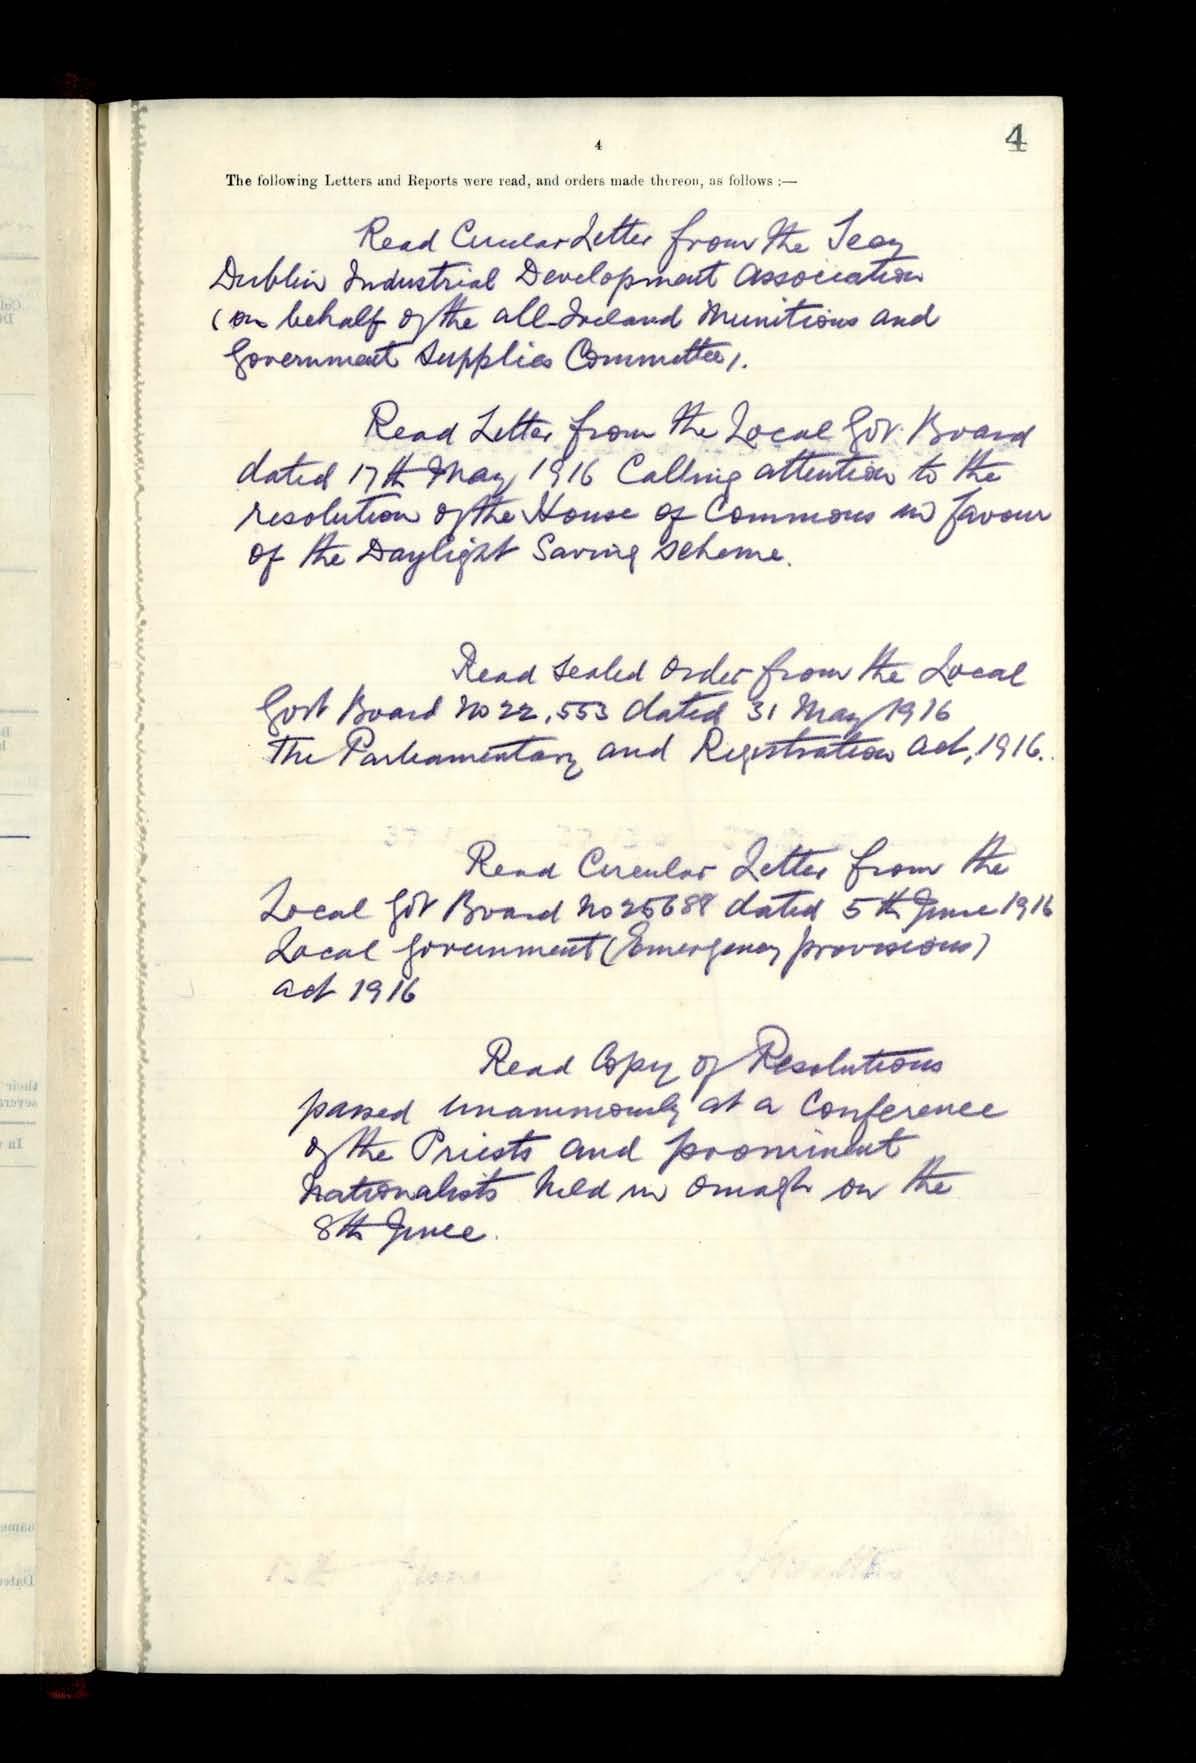 4
4
The following Letters and Reports were read, and orders made thereon, as follows :—
Read Circular Letter from the Secy
Dublin Industrial Development Association
(on behalf of the all-Ireland Munitions and
Government Supplies Committee).
Read Letter from the Local Gov. Board
dated 17th May 1916 Calling attention to the
resolution of the House of Commons in favour
of the Daylight Saving scheme.
Read Sealed Order from the Local
Govt Board No 22,553 dated 31 May 1916
The Parliamentary and Registration Act, 1916.
Read Circular Letter from the
Local Gov Board No 25688 dated 5th June 1916
Local Government (Emergency provisions)
act 1916
Read Copy of Resolutions
passed unanimously at a Conference
of the Priests and prominent
Nationalists held in Omagh on the
8th June.